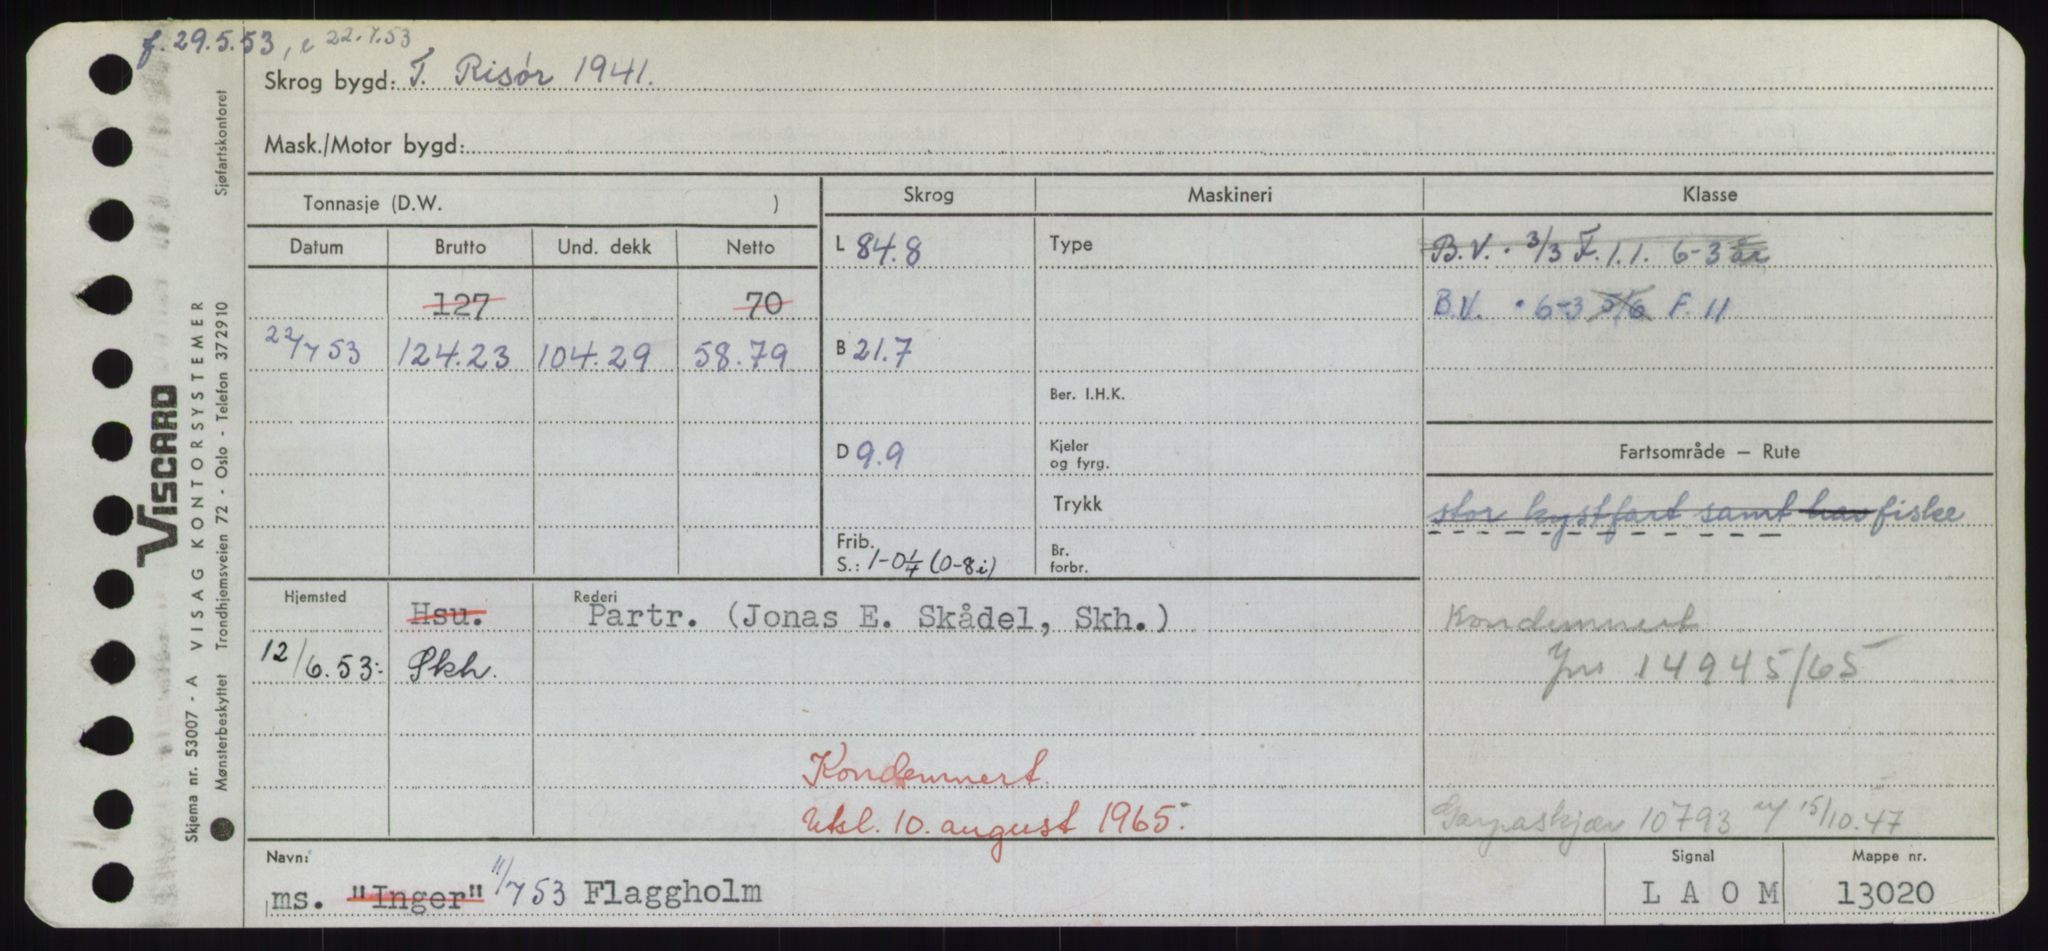 f. 29.5.53, c 22.7.53
Skrog bygd: T. Risør 1941.
Mask./Motor bygd:
Tonnasje (D.W. )
Skrog
Maskineri
Klasse
Datum Brutto Und. dekk Netto
L 84.8
Type
B.V. · 3/3 F. 1.1. 6-3 år
127 70
B.V. · 6-3 5/6 F. 11
22/7 53 124.23 104.29 58.79
B 21.7
Ber. I.H.K.
D 9.9
Kjeler
og fyrg.
Fartsområde — Rute
Trykk
stor kystfart samt hav fiske
Frib.
S.: 1-0¼ (0-8i)
Br.
forbr.
Hjemsted Hsu.
Rederi
Partr. (Jonas E. Skådel, Skh.)
Kondemnert
12/6.53: Skh.
Jnr 14945/65
Kondemnert.
Utsl. 10. august 1965:
10793 15/10.47
Navn:
ms. "Inger" 11/7 53 Flaggholm
Signal
LAOM
Mappe nr.
13020
VISCARD
Skjema nr. 53007 - A VISAG KONTORSYSTEMER
Mønsterbeskyttet Trondhjemsveien 72 - Oslo - Telefon 372910 Sjøfartskontoret